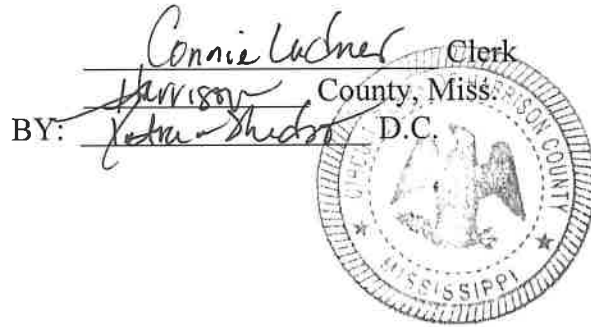 Connie Ladner Clerk
Harrison County, Miss.
BY: D.C.
CIRCUIT HARRISON COUNTY
MISSISSIPPI